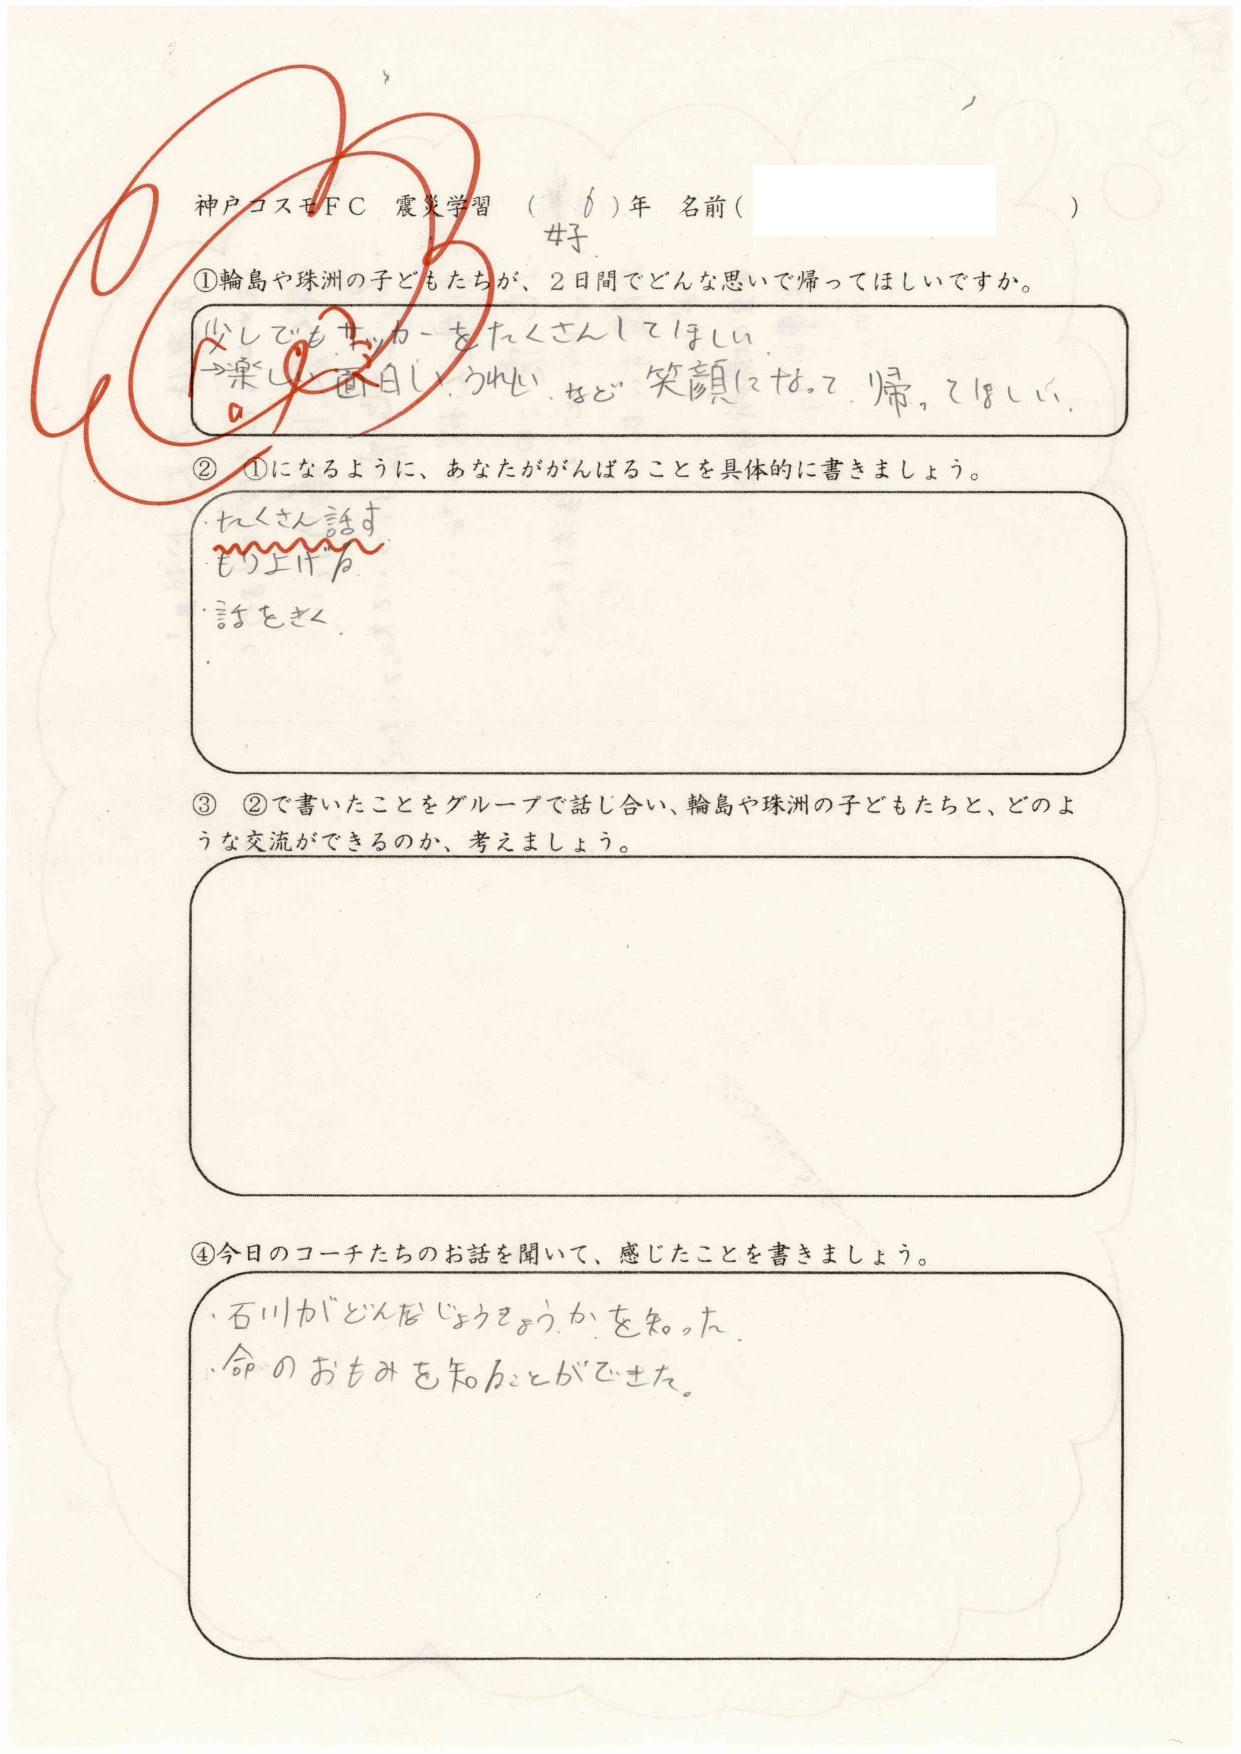 神戸コスモFC 震災学習 ( 6 )年 名前( )
好
①輪島や珠洲の子どもたちが、2日間でどんな思いで帰ってほしいですか。
少しでもサッカーをたくさんしてほしい
→楽しい面白い、うれしい、など 笑顔になって、帰ってほしい、
② ①になるように、あなたががんばることを具体的に書きましょう。
・たくさん話す
・もり上げる
・話をきく、
・
③ ②で書いたことをグループで話し合い、輪島や珠洲の子どもたちと、どのよ
うな交流ができるのか、考えましょう。
④今日のコーチたちのお話を聞いて、感じたことを書きましょう。
・石川がどんなじょうきょうか、を知った、
・命のおもみを知ることができた。